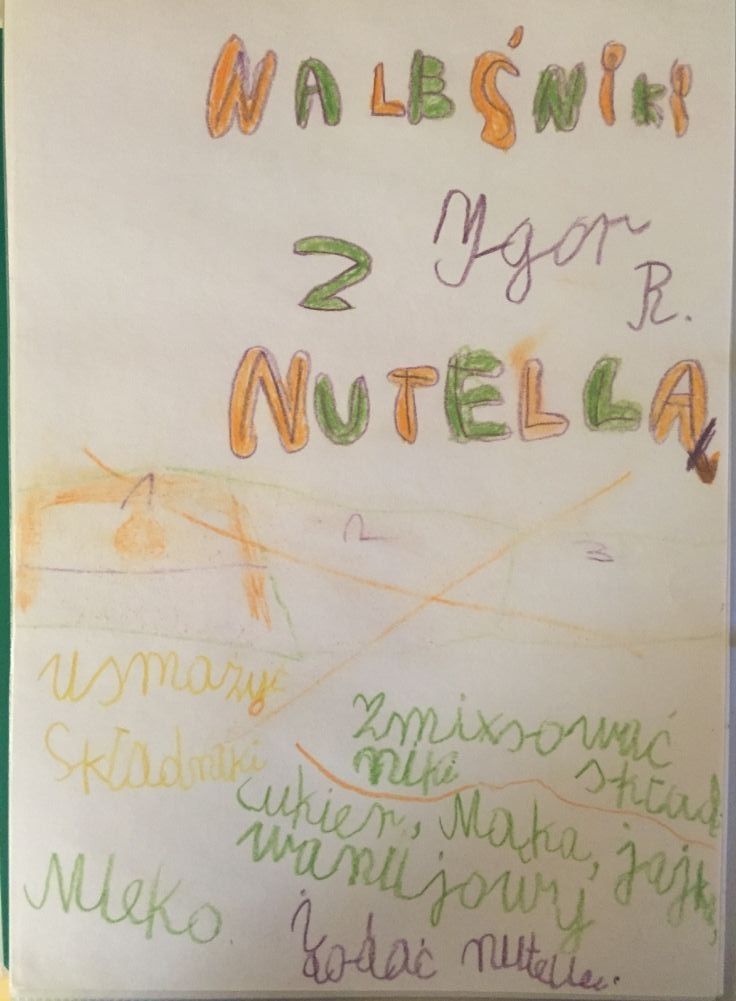 NALEŚNIKI
Z Igor
R.
NUTELLĄ
1 2 3
usmażyć
Składniki
Zmixsować
skład
niki
cukier, Mąka, jajka,
wanilijowy
Mleko.
i dodać nutelle.